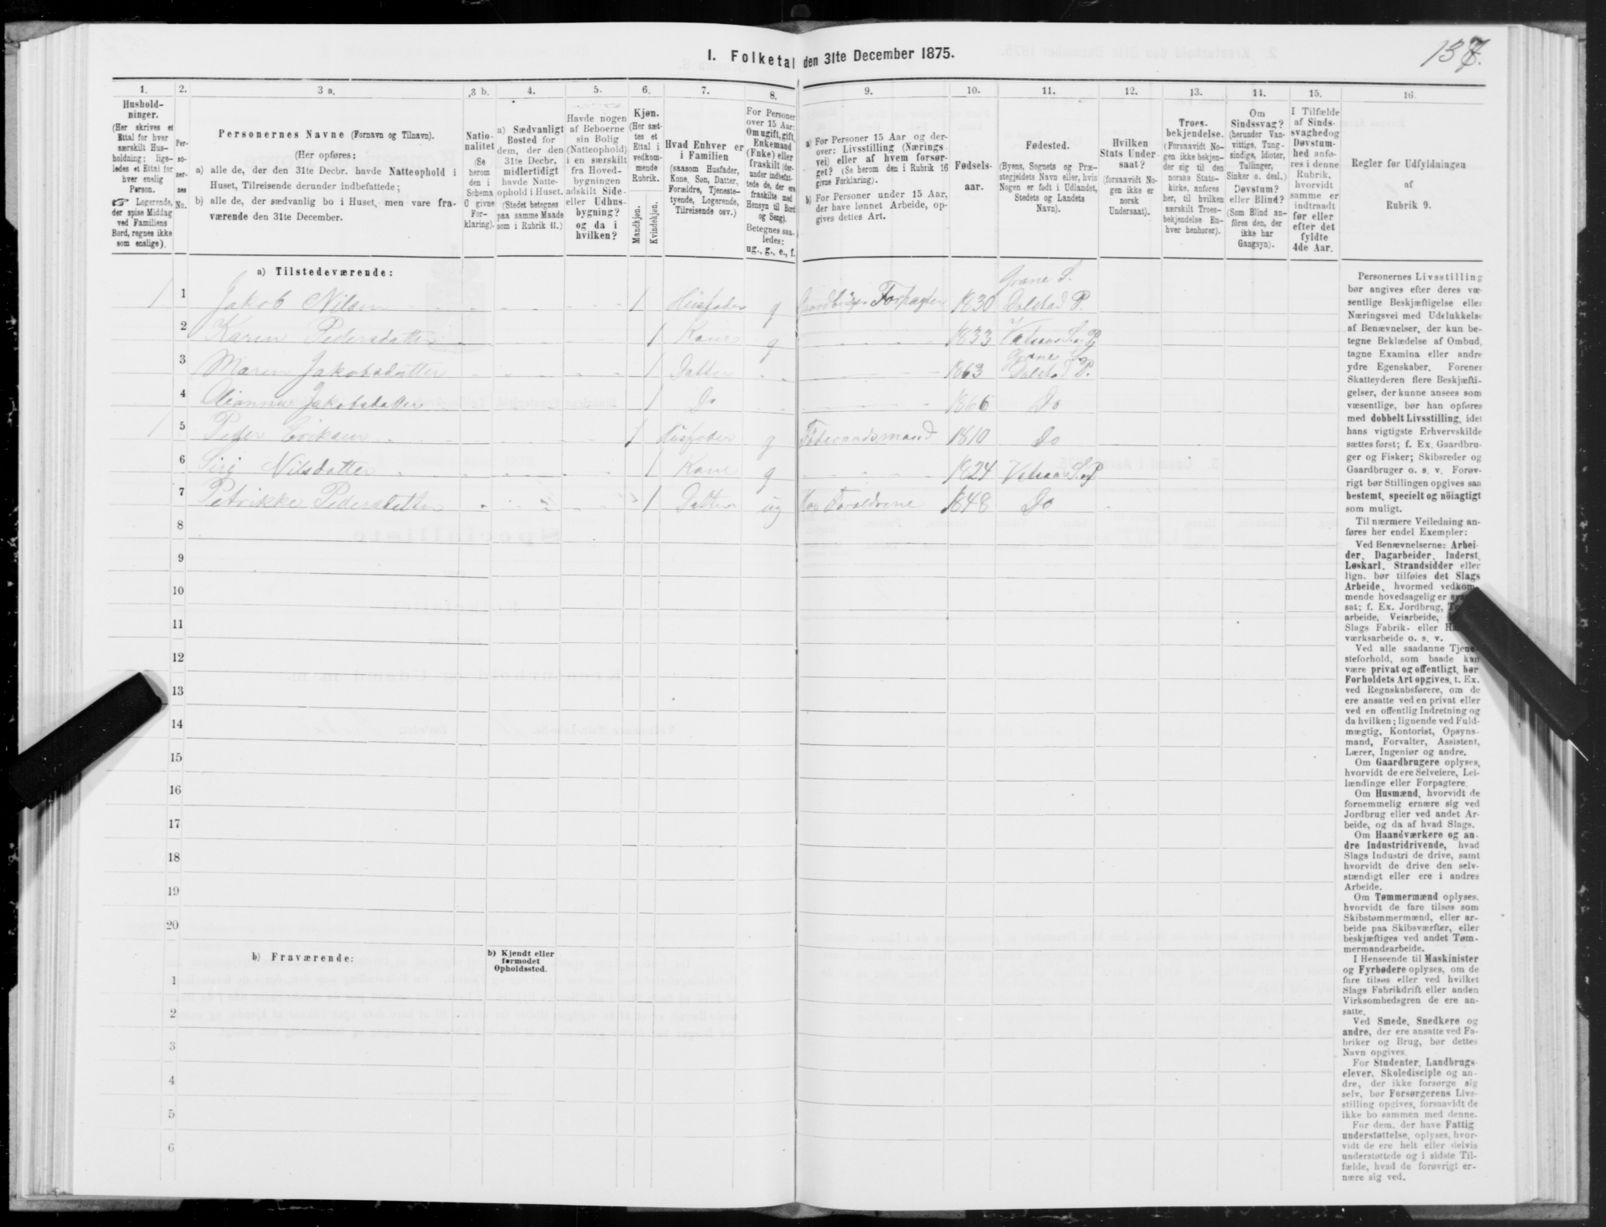 I. Folketal den 31te December 1875.
137.
1. 2. 3 a. 3 b. 4. 5. 6. 7. 8. 9. 10. 11. 12. 13. 14. 15. 16.
Hushold-
ninger.
(Her skrives et
Ettal for hver
særskilt Hus-
holdning; lige-
ledes et Ettal for
hver enslig
Person.
☞ Logerende,
der spise Middag
ved Familiens
Bord, regnes ikke
som enslige).
Per-
so-
ner-
nes
No.
Personernes Navne (Fornavn og Tilnavn).
(Her opføres:
a) alle de, der den 31te Decbr. havde Natteophold i
Huset, Tilreisende derunder indbefattede;
b) alle de, der sædvanlig bo i Huset, men vare fra-
værende den 31te December.
Natio-
nalitet
(Se
herom
den i
Schema
C givne
For-
klaring).
a) Sædvanligt
Bosted for
dem, der den
31te Decbr.
midlertidigt
havde Natte-
ophold i Huset.
(Stedet betegnes
paa samme Maade
som i Rubrik 11.)
Havde nogen
af Beboerne
sin Bolig
(Natteophold)
i en særskilt
fra Hoved-
bygningen
adskilt Side-
eller Udhus-
bygning?
og da i
hvilken?
Kjøn.
(Her sæt-
tes et
Ettal i
vedkom-
mende
Rubrik.
Mandkjøn.
Kvindekjøn.
Hvad Enhver er
i Familien
(saasom Husfader,
Kone, Søn, Datter,
Forældre, Tjeneste-
tyende, Logerende,
Tilreisende osv.)
For Personer
over 15 Aar:
Om ugift, gift,
Enkemand
(Enke) eller
fraskilt (der-
under indbefat-
tede de, der ere
fraskilte med
Hensyn til Bord
og Seng).
Betegnes saa-
ledes:
ug., g., e., f.
a) For Personer 15 Aar og der-
over: Livsstilling (Nærings-
vei) eller af hvem forsør-
get? (Se herom den i Rubrik 16
givne Forklaring).
b) For Personer under 15 Aar,
der have lønnet Arbeide, op-
gives dettes Art.
Fødsels-
aar.
Fødested.
(Byens, Sognets og Præ-
stegjeldets Navn eller, hvis
Nogen er født i Udlandet,
Stedets og Landets
Navn).
Hvilken
Stats Under-
saat?
(forsaavidt No-
gen ikke er
norsk
Undersaat).
Troes-
bekjendelse.
(Forsaavidt No-
gen ikke bekjen-
der sig til den
norske Stats-
kirke, anføres
her, til hvilken
særskilt Troes-
bekjendelse En-
hver henhører).
Om
Sindssvag?
(herunder Van-
vittige, Tung-
sindige, Idioter,
Tullinger,
Sinker o. desl.)
Døvstum?
eller Blind?
(Som Blind an-
føres den, der
ikke har
Gangsyn).
I Tilfælde
af Sinds-
svaghed og
Døvstum-
hed anfø-
res i denne
Rubrik,
hvorvidt
samme er
indtraadt
før eller
efter det
fyldte
4de Aar.
Regler for Udfyldningen
af
Rubrik 9.
a) Tilstedeværende:
1 1 Jakob Nilsen 1 Husfader g Gaardbruger Forpagter 1830 Grane S. Dolstad P.
2 Karen Pedersdatter 1 Kone g 1833 Vefsen S. og P.
3 Maren Jakobsdatter 1 Datter 1863 Grane S. Dolstad P.
4 Jakobsdatter 1 Do 1866 Do
1 5 Peder Eriksen 1 Husfader g Føderaadsmand 1810 Do
6 Siri Nilsdatter 1 Kone g 1824
7 Petrikke Pedersdatter 1 Datter ug Hos Forældrene 1848 Do
8
9
10
11
12
13
14
15
16
17
18
19
20
b) Fraværende:
b) Kjendt eller
formodet
Opholdssted.
1
2
3
4
5
6
Personernes Livsstilling
bør angives efter deres væ-
sentlige Beskjæftigelse eller
Næringsvei med Udelukkelse
af Benævnelser, der kun be-
tegne Beklædelse af Ombud,
tagne Examina eller andre
ydre Egenskaber. Forener
Skatteyderen flere Beskjæfti-
gelser, der kunne ansees som
væsentlige, bør han opføres
med dobbelt Livsstilling, idet
hans vigtigste Erhvervskilde
sættes først; f. Ex. Gaardbru-
ger og Fisker; Skibsreder og
Gaardbruger o. s. v. Forøv-
rigt bør Stillingen opgives saa
bestemt, specielt og nöiagtigt
som muligt.
Til nærmere Veiledning an-
føres her endel Exempler:
Ved Benævnelserne: Arbei-
der, Dagarbeider, Inderst,
Løskarl, Strandsidder eller
lign. bør tilføies det Slags
Arbeide, hvormed vedkom-
mende hovedsagelig er
sat; f. Ex. Jordbrug,
arbeide, Veiarbeide,
Slags Fabrik- eller
værksarbeide o. s. v.
Ved alle saadanne Tjene-
steforhold, som baade kan
være privat og offentligt, bør
Forholdets Art opgives, t. Ex.
ved Regnskabsførere, om de
ere ansatte ved en privat eller
ved en offentlig Indretning og
da hvilken; lignende ved Fuld-
mægtig, Kontorist, Opsyns-
mand, Forvalter, Assistent,
Lærer, Ingeniør og andre.
Om Gaardbrugere oplyses,
hvorvidt de ere Selveiere, Lei-
lændinge eller Forpagtere.
Om Husmænd, hvorvidt de
fornemmelig ernære sig ved
Jordbrug eller ved andet Ar-
beide, og da af hvad Slags.
Om Haandværkere og an-
dre Industridrivende, hvad
Slags Industri de drive, samt
hvorvidt de drive den selv-
stændigt eller ere i andres
Arbeide.
Om Tømmermænd oplyses,
hvorvidt de fare tilsøs som
Skibstømmermænd, eller ar-
beide paa Skibsværfter, eller
beskjæftiges ved andet Tøm-
mermandsarbeide.
I Henseende til Maskinister
og Fyrbødere oplyses, om de
fare tilsøs eller ved hvilket
Slags Fabrikdrift eller anden
Virksomhedsgren de ere an-
satte.
Ved Smede, Snedkere og
andre, der ere ansatte ved Fa-
briker og Brug, bør dettes
Navn opgives.
For Studenter, Landbrugs-
elever, Skoledisciple og an-
dre, der ikke forsørge sig
selv, bør Forsørgerens Livs-
stilling opgives, forsaavidt de
ikke bo sammen med denne.
For dem, der have Fattig
understøttelse, oplyses, hvor-
vidt de ere helt eller delvis
understøttede og i sidste Til-
fælde, hvad de forøvrigt er-
nære sig ved.